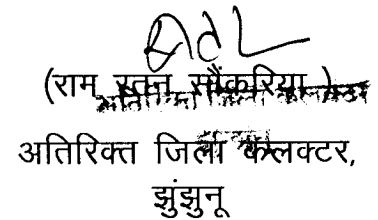 (राम रतन सौंकरिया )
अतिरिक्त जिला कलक्टर,
झुंझुनू